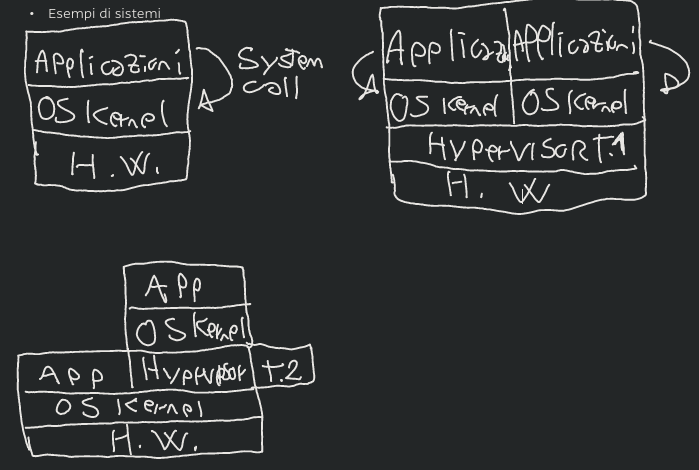 • Esempi di sistemi
Applicazioni
System
call
OS Kernel
H.W.
Applicaz Applicazioni
OS Kernel OS Kernel
HYPERVISOR T.1
H. W
App
OS Kernel
App Hypervisor T.2
OS Kernel
H.W.